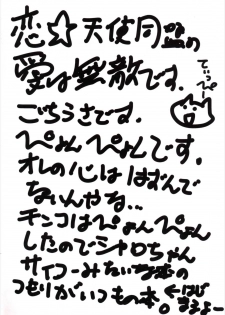 恋☆天使同盟の
愛は無敵です.
てぃっぴー
ごちうさです.
ぴょんぴょんです.
オレの心ははずんで
ないんやな...
チンコはぴょんぴょん
したのでシャロちゃん
サイコーみたいな本の
つもりがいつもの本。
←はじまるよー